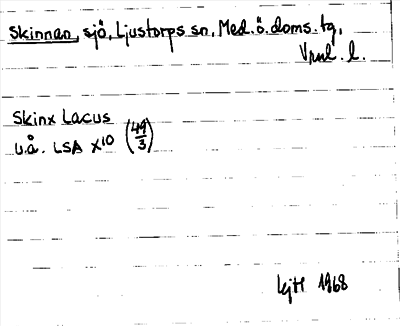 Skinnen, sjö, Ljustorps sn, Med. ö. doms. tg,
Vnrl. l.
Skinx Lacus
u.å. LSA X¹⁰ (49/3)
kjtl 1968